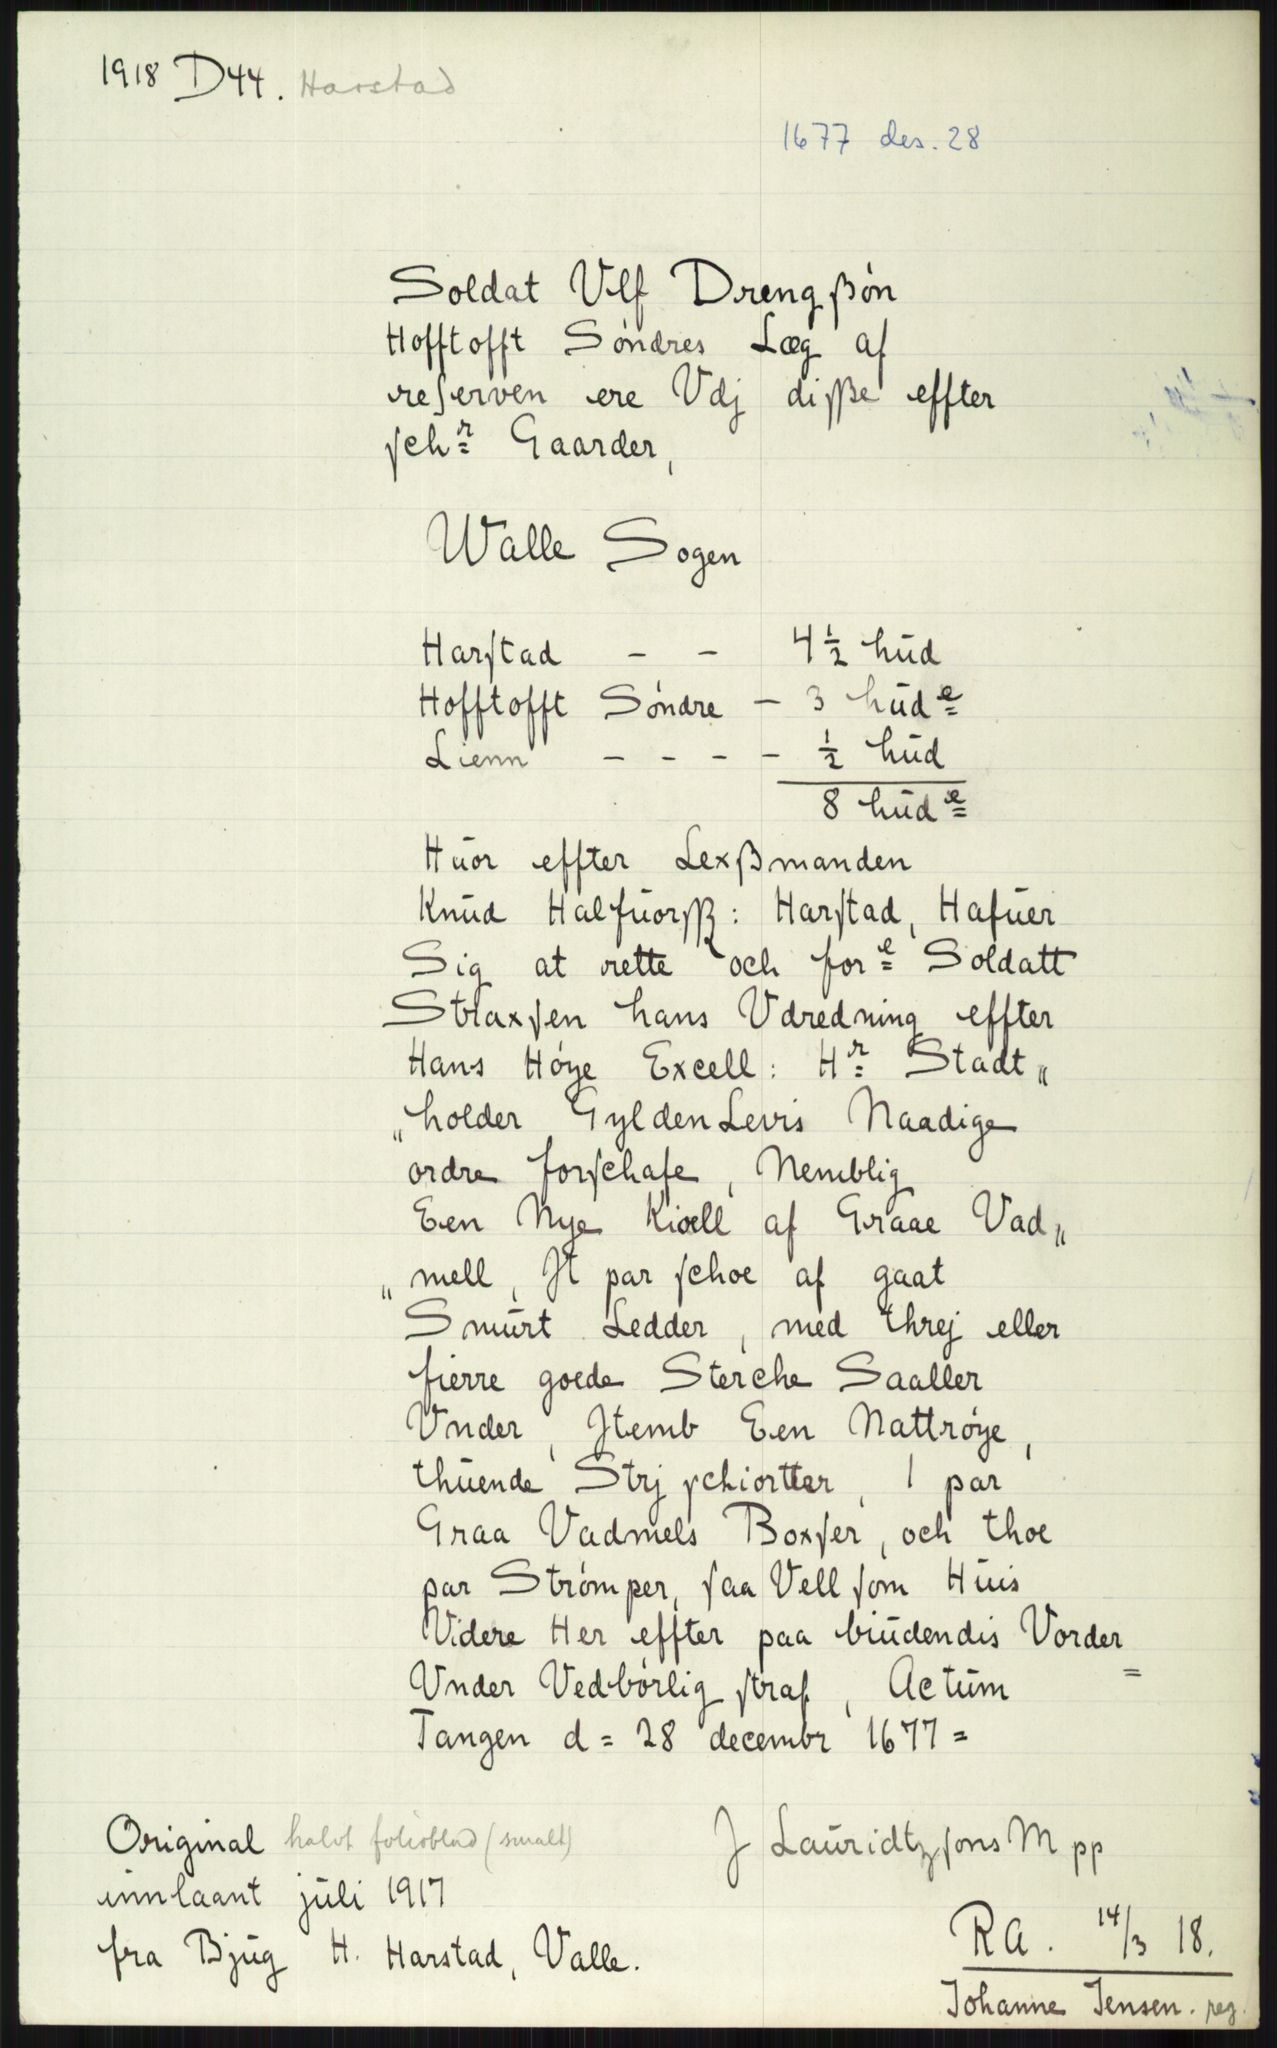 1918 D44. Harstad
1677 des. 28
Soldat Ulf Drengßøn
Hofftofft Søndres Læg af
reserven ere Udj disße effter
sch:r Gaarder,
Walle Sogen
Harstad - - 4 1/2 hūd
Hofftofft Søndre - 3 hūde
Lienn - - - - 1/2 hūd
8 hūde
Hūor effter Lexßmanden
Knūd Halfūorsß: Harstad, Hafūer
Sig at rette och fore Soldatt
Straxsen hans Vdredning effter
Hans Høye Excell: Hr Stadt„
„holder GyldenLevis Naadige
ordre forschafe, Nemblig
Een Nye Kioell af Graae Vad„
„mell, Jt par schoe af gaat
Smūrt Ledder, med threj eller
fierre goede Sterche Saaller
Vnder, Jtemb Een Nattrøye,
thūende Strj schiortter, 1 par
Graa Vadmels Boxser, och thoe
par Strømper, saa Vell som Hūis
Videre Her effter paa biūdendis Vorder
Vnder Vedbørlig straf, Actūm =
Tangen d = 28 decembr 1677 =
J Laūridtzsøns M pp
Original halvt folioblad (smalt)
innlaant jūli 1917
fra Bjūg H. Harstad, Valle.
RA. 14/3 18.
Johanne Jensen. reg.